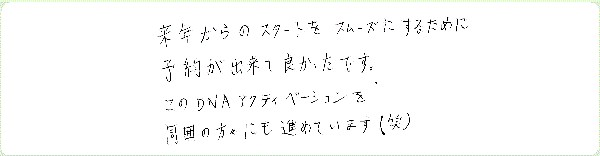 来年からのスタートをスムーズにするために
予約が出来て良かったです。
このDNAアクティベーションを
周囲の方々にも進めています(笑)